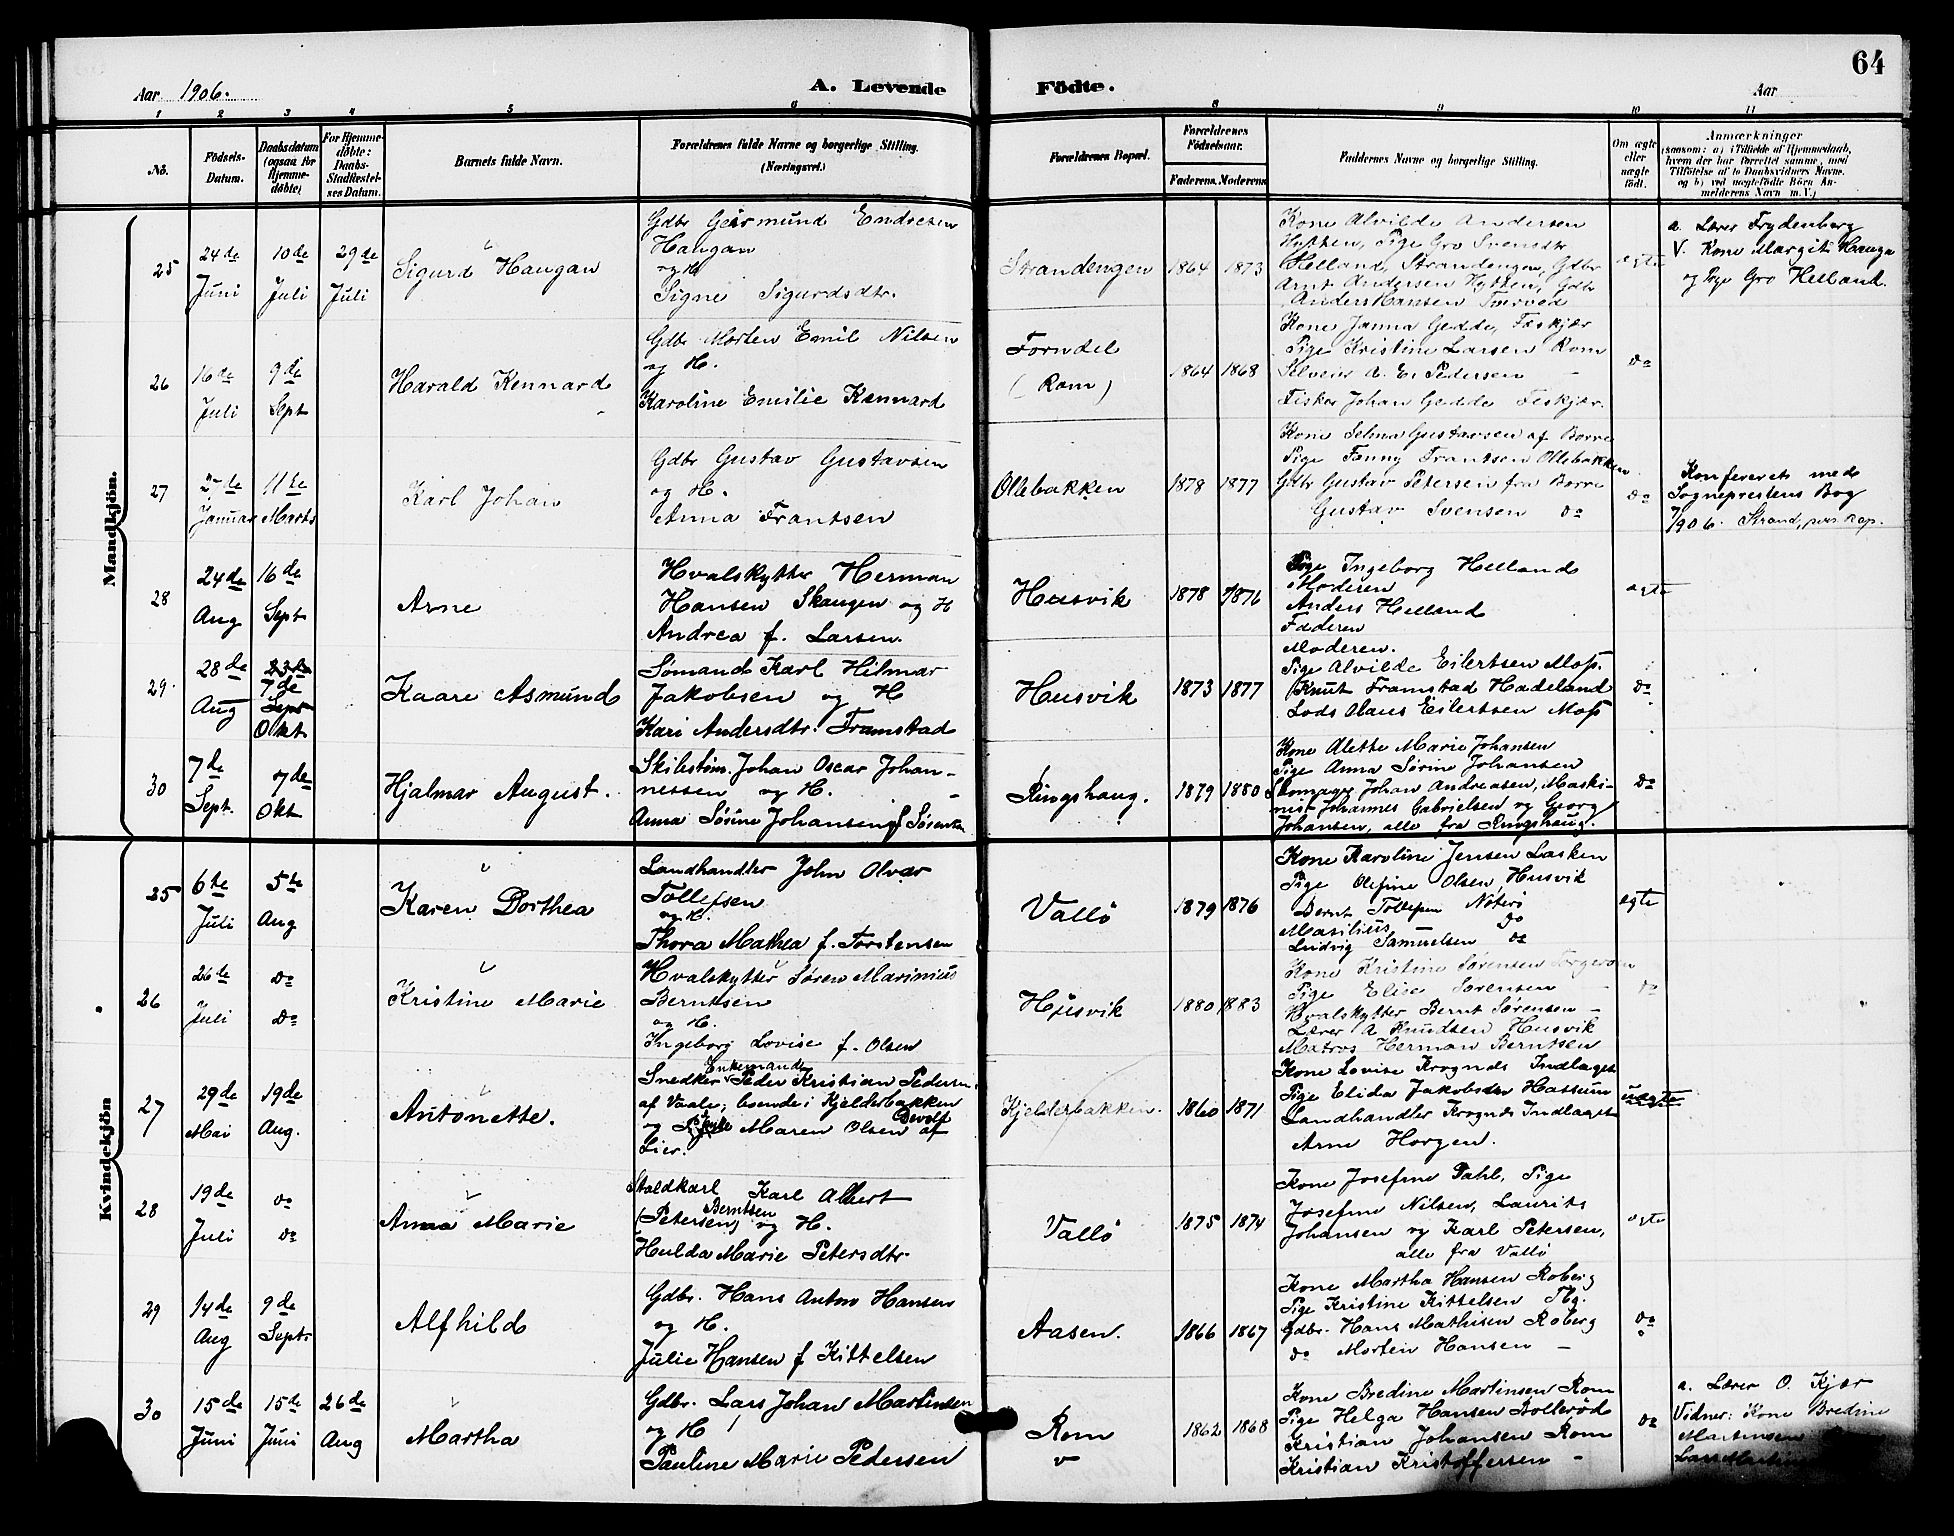 64
Aar 1906. A. Levende Födte. Aar
1 2 3 4 5 6 8 9 10 11
No.
Födsels-Datum.
Daabsdatum (ogsaa for Hjemmedöbte)
For Hjemmedöbte: Daabs-Stadfestelses Datum.
Barnets fulde Navn.
Forældrenes fulde Navne og borgerlige Stilling. (Næringsvei.)
Forældrenes Bopæl.
Forældrenes Födselsaar.
Faderens. Moderens
Faddernes Navne og borgerlige Stilling.
Om ægte eller uægte födt.
Anmærkninger
(saasom: a) i Tilfælde af Hjemmedaab,
hvem der har forrettet samme, med
Tilföielse af to Daabsvidners Navne.
og b) ved uægtefödte Börn An-
melderens Navn m. V.)
Mandkjön.
25
24de Juni
10de Juli
29de Juli
Sigurd Haugan
Gdbr Geirmund Endresen
Haugan
og H
Signe Sigurdsdtr.
Strandengen
1864 1873
Kone Alvilde Andersen
Hytten, Pige Gro Svensdtr
Helland, Strandengen, Gdbr
Arnt Andersen Hytten, Gdbr
Anders Hansen Tverved
ægte
a. Lærer Frydenberg
V. Kone Margit Hauga
og Pige Gro Helland.
26
16de Juli
9de Sept
Harald Kennard
Gdbr Morten Emil Nilsen
og H.
Karoline Emilie Kennard
Forndel
(Rom)
1864 1868
Kone Janna Gedde, Fæskjær
Pige Kristine Larsen Rom
Selveier A. E. Pedersen –
Fisker Johan Gedde Feskjær.
Do
27
27de Januar
11te Marts
Karl Johan
Gdbr Gustav Gustavsen
og H.
Anna Frantsen
Ollebakken
1878 1877
Kone Selma Gustavsen af Borre
Pige Fanny Frantsen Ollebakken
Gdbr Gustav Petersen fra Borre
Gustav Svensen Do
Do
Konfereret med
Sogneprestens Bog
7/906. Strand, pers. Kap.
28
24de Aug
16de Sept
Arne
Hvalskytter Herman
Hansen Skaugen og H
Andrea f. Larsen.
Husvik
1878 1876
Pige Ingeborg Helland
Moderen
Anders Helland
Faderen
ægte
29.
28de Aug
23de 7de Sept Okt
Kaare Asmund
Sømand Karl Hilmar
Jakobsen og H
Kari Andersdtr. Framstad
Husvik
1873 1877
Moderen.
Pige Alvilde Eilertsen Moss.
Knut Framstad Hadeland
Lods Olaus Eilertsen Moss
Do
30
7de Sept.
7de Okt
Hjalmar August.
Skibstøm. Johan Oscar Johan-
nessen og H. –
Anna Sørine Johansen f Sørensen
Ringshaug.
1879 1880
Kone Alette Marie Johansen
Pige Anna Sørine Johansen
Skomager Johan Andreasen, Maski-
nist Johannes Gabrielsen og Georg
Johansen, alle fra Ringshaug.
Do
Kvindekjön
25
6te Juli
5te Aug
Karen Dorthea
Landhandler John Olvar
Tollefsen
og H.
Thora Mathea f. Torstensen
Vallö
1879 1876
Kone Karoline Jensen Lasken
Pige Olefine Olsen, Husvik
Bernt Tollefsen Nøterö
Masilius – Do
Ludvig Samuelsen Do
ægte
26
26te Juli
Do Do
Kristine Marie
Hvalskytter Søren Marinius
Berntsen
og H.
Ingeborg Lovise f. Olsen
Husvik
1880 1883
Kone Kristine Sørensen Torgersen
Pige Elise Sørensen –
Hvalskytter Bernt Sørensen –
Lærer A Knudsen Husvik
Matros Herman Berntsen
Do
27
29de Mai
19de Aug.
Antonette.
Enkemand
Snedker Peder Kristian Pedersen
af Vaale, boende i Kjelderbakken
og Pige Maren Olsen af
Lier.
Kjelderbakken.
1860 1871
Kone Lovise Krognes Indlaget
Pige Elida Jakobsen Hassum
Landhandler Krognes Indlaget
Arne Horgen.
uægte
28
19de Juli
Do Do
Anna Marie
Staldkarl Karl Albert
Berntsen
(Petersen) og H.
Hulda Marie Petersdtr
Vallö
1875 1874
Kone Josefine Dahl, Pige
Josefine Nilsen, Laurits
Johansen og Karl Petersen,
alle fra Vallö
ægte
29
14de Aug
9de Septr
Alfhild
Gdbr. Hans Anton Hansen
og H.
Julie Hansen f Kittelsen
Aasen.
1866 1867
Kone Martha Hansen Roberg
Pige Kristine Kittelsen Tbg.
Gdbr. Hans Mathisen Roberg
Do Morten Hansen –
Do
30
15de Juni
15de Juni
26de Aug
Martha
Gdbr. Lars Johan Martinsen
og H
Pauline Marie Pedersen
Rom
1862 1868
Kone Bredine Martinsen Rom
Pige Helga Hansen Bolleröd
Kristian Johansen Rom
Kristian Kristoffersen –
Do
a. Lærer O. Kjær
Vidner: Kone Bredine
Martinsen
Lars Martins